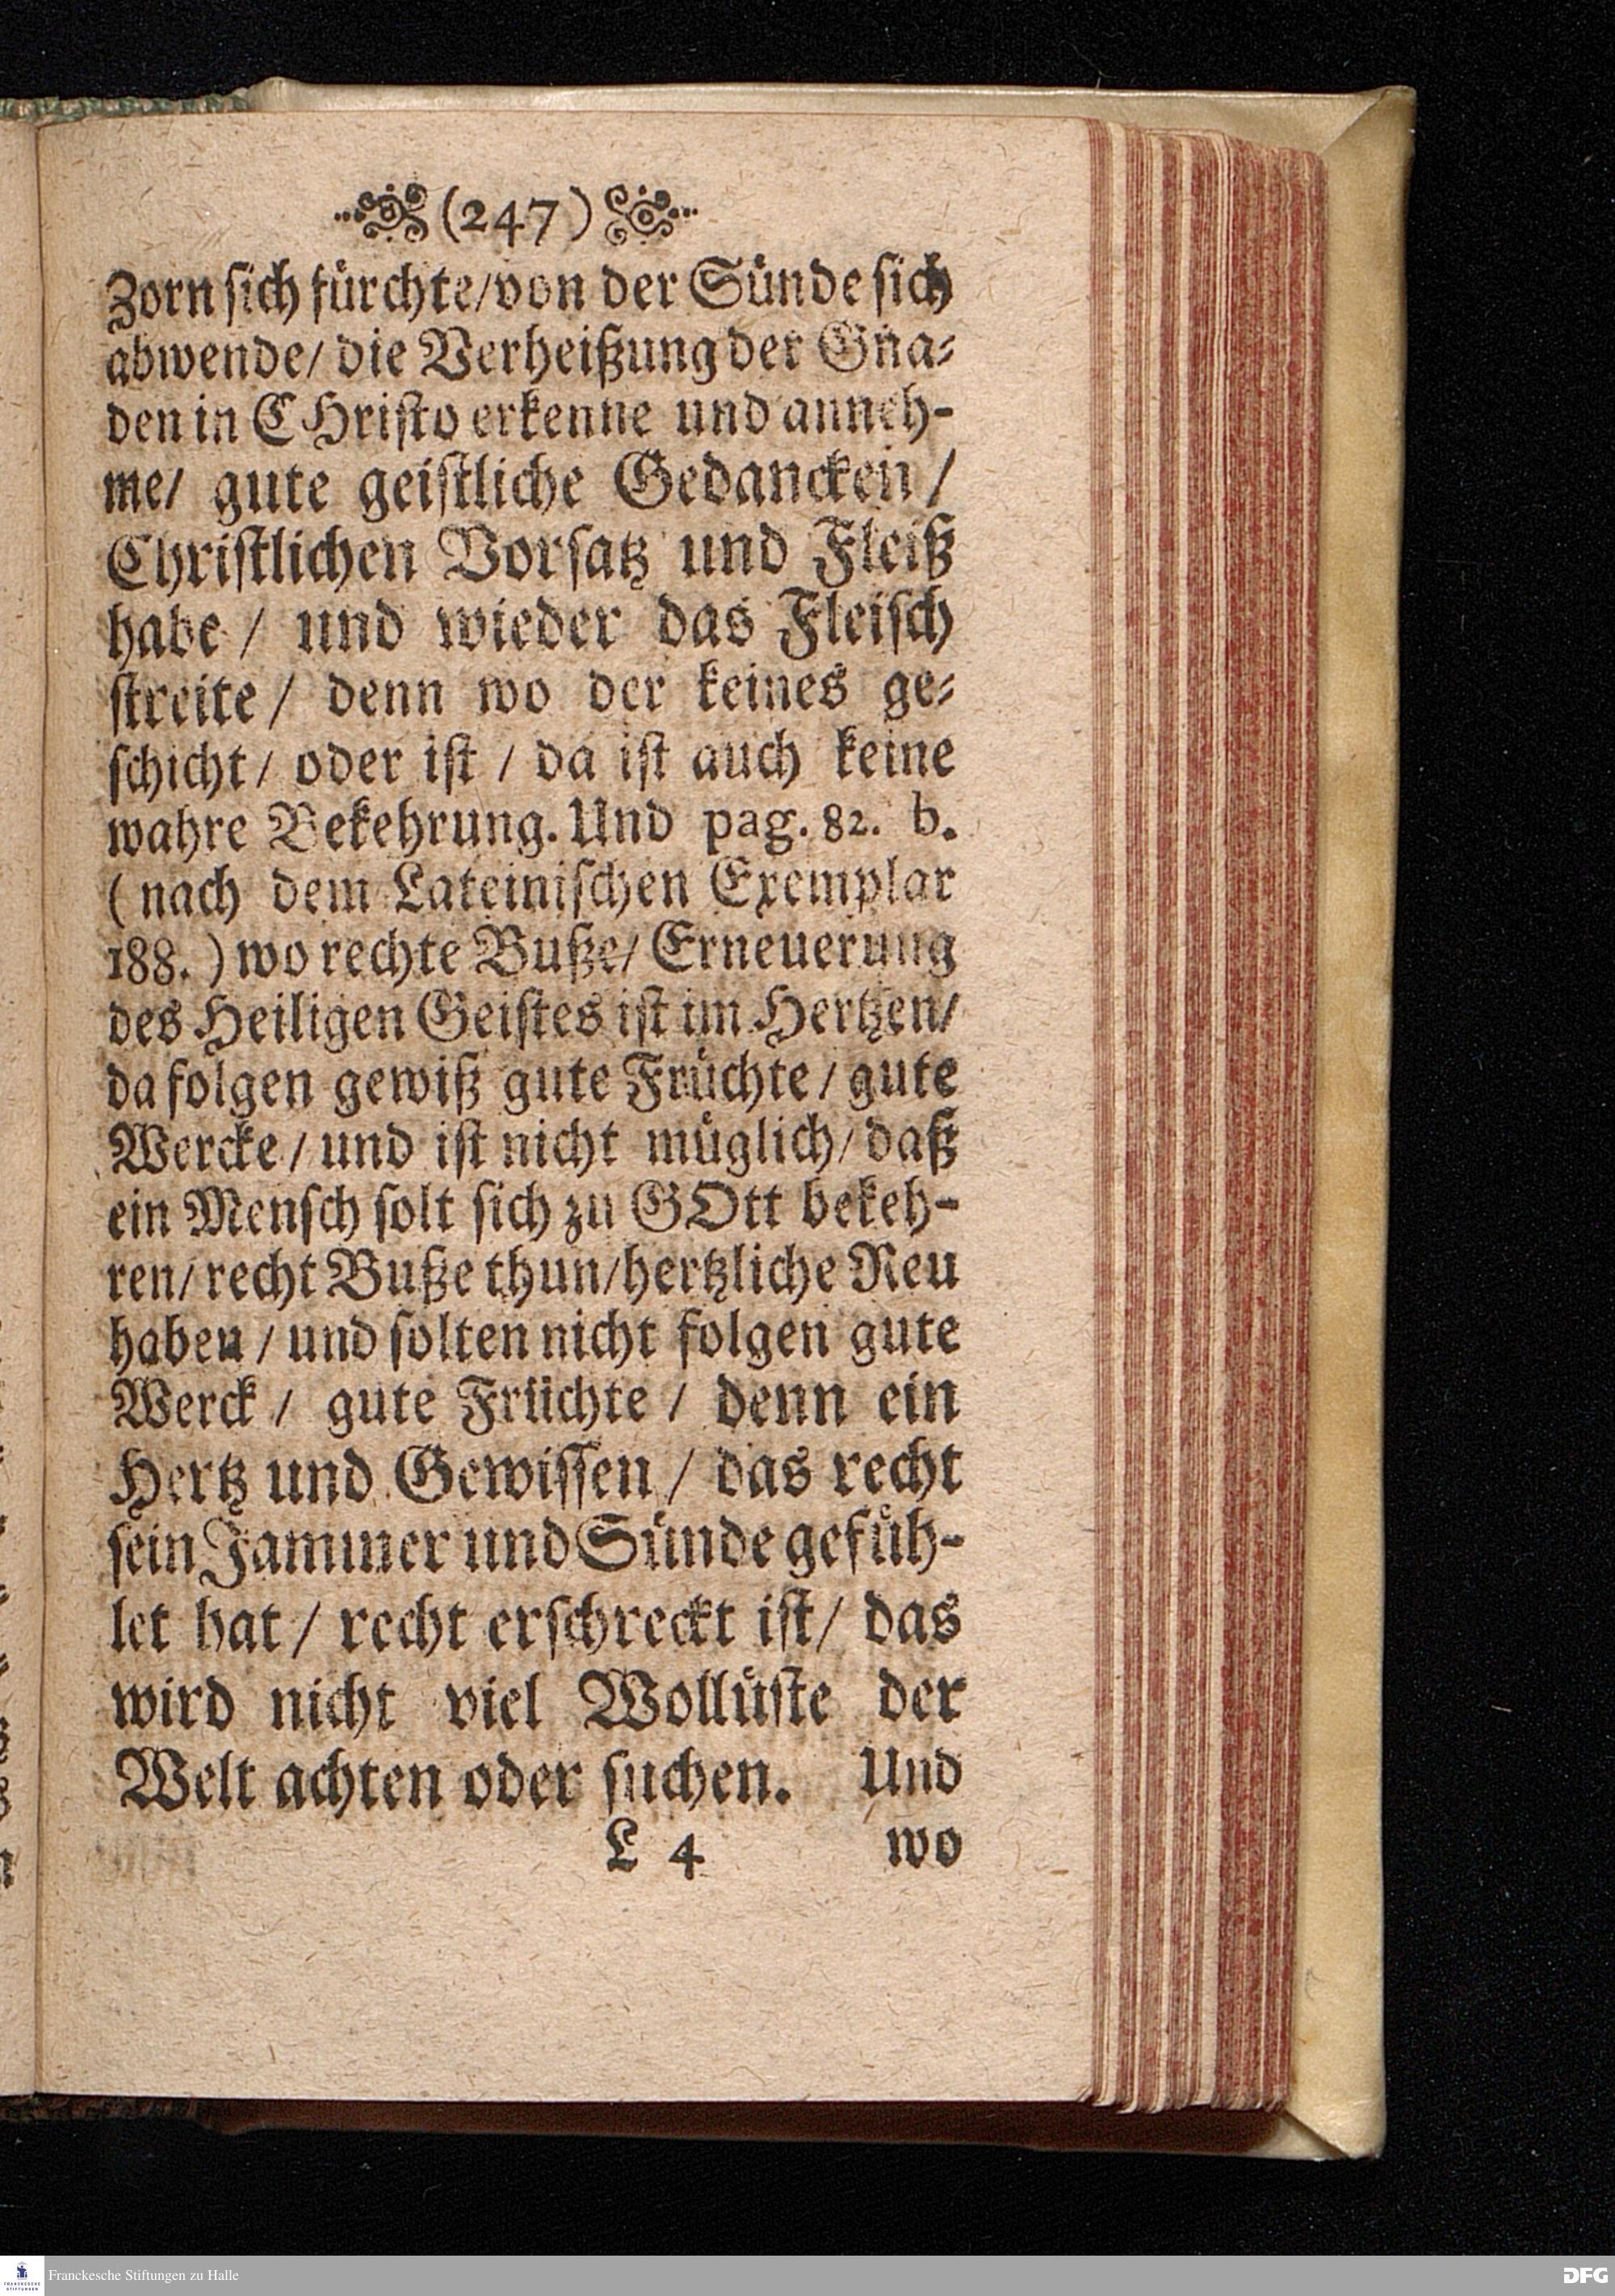 (247)
Zorn sich fürchte/von der Sünde sich
abwende/ die Verheißung der Gna-
den in CHristo erkenne und anneh-
me/ gute geistliche Gedancken /
Christlichen Vorsatz und Fleiß
habe / und wieder das Fleisch
streite / denn wo der keines ge-
schicht / oder ist / da ist auch keine
wahre Bekehrung. Und pag. 82. b.
( nach dem Lateinischen Exemplar
188. ) wo rechte Buße/ Erneuerung
des Heiligen Geistes ist im Hertzen/
da folgen gewiß gute Früchte / gute
Wercke / und ist nicht müglich/ daß
ein Mensch solt sich zu GOtt bekeh-
ren/ recht Buße thun/hertzliche Reu
haben / und solten nicht folgen gute
Werck / gute Früchte / denn ein
Hertz und Gewissen / das recht
sein Jammer und Sünde gefüh-
let hat / recht erschreckt ist/ das
wird nicht viel Wollüste der
Welt achten oder suchen. Und
L 4 wo
Franckesche Stiftungen zu Halle
DFG